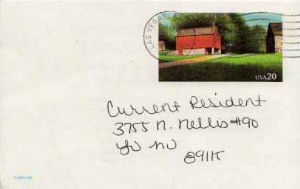 LAS VEGAS
USA 20
Current Resident
3755 N. Nellis #90
LV NV
89115